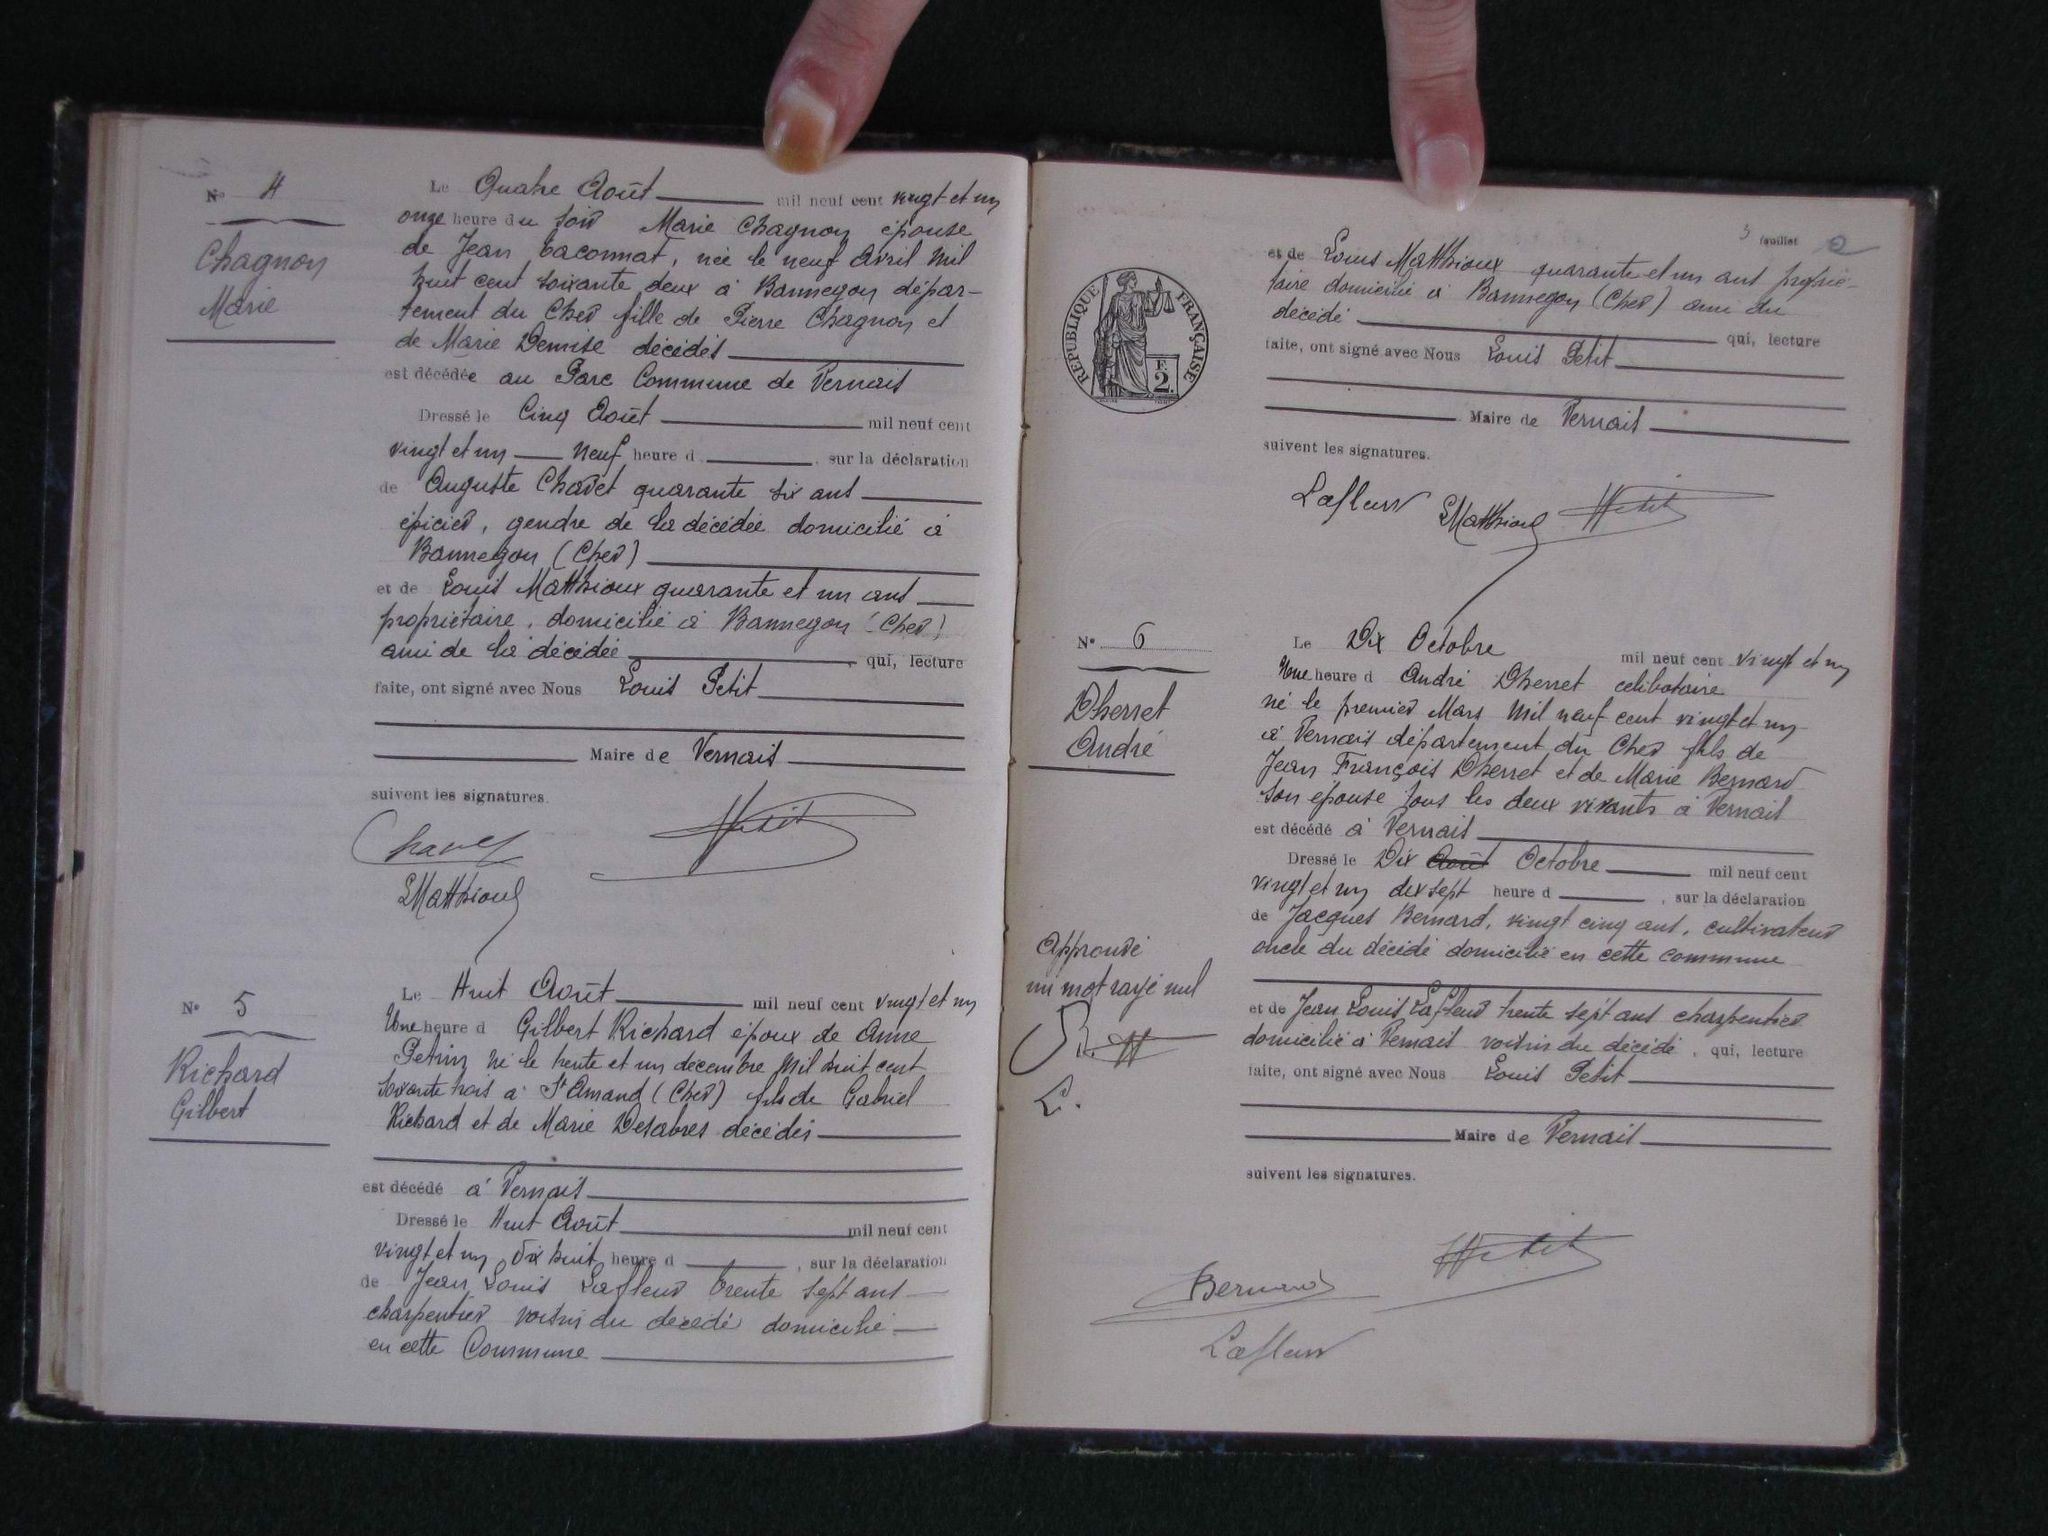 N° 4
Chagnon
Marie
Le Quatre Août mil neuf cent vingt et un
onze heure du soir Marie Chagnon épouse
de Jean Taconnat, née le neuf Avril mil
huit cent soixante deux à Bannegon dépar-
tement du Cher fille de Pierre Chagnon et
de Marie Denise décédés
est décédée au Parc Commune de Vernais
Dressé le Cinq Août mil neuf cent
vingt et un neuf heure d , sur la déclaration
de Auguste Chavet quarante six ans
épicier, gendre de la décédée domicilié à
Bannegon (Cher)
et de Louis Matthioux quarante et un ans
propriétaire, domicilié à Bannegon (Cher)
ami de la décédée , qui, lecture
faite, ont signé avec Nous Louis Petit
Maire de Vernais
suivent les signatures.
Chavet Petit
LMatthioux
N° 5
Richard
Gilbert
Le Huit Août mil neuf cent vingt et un
Une heure d Gilbert Richard époux de Anne
Petrin né le trente et un décembre mil huit cent
soixante trois à St Amand (Cher) fils de Gabriel
Richard et de Marie Desabres décédés
est décédé à Vernais
Dressé le Huit Août mil neuf cent
vingt et un dix huit heure d , sur la déclaration
de Jean Louis Lafleur trente sept ans
charpentier voisin du décédé domicilié
en cette Commune
3 feuillet 2
RÉPUBLIQUE FRANÇAISE
F.
2.
et de Louis Matthioux quarante et un ans proprié-
taire domicilié à Bannegon (Cher) ami du
décédé qui, lecture
faite, ont signé avec Nous Louis Petit
Maire de Vernais
suivent les signatures.
Lafleur LMatthioux Petit
N° 6
Dherret
André
Le Dix Octobre mil neuf cent vingt et un
Une heure d André Dherret célibataire
né le premier Mars mil neuf cent vingt et un
à Vernais département du Cher fils de
Jean François Dherret et de Marie Bernard
son épouse tous les deux vivants à Vernais
est décédé à Vernais
Dressé le Dix Août Octobre mil neuf cent
vingt et un dix sept heure d , sur la déclaration
de Jacques Bernard, vingt cinq ans, cultivateur
oncle du décédé domicilié en cette commune
et de Jean Louis Lafleur trente sept ans charpentier
domicilié à Vernais voisin du décédé , qui, lecture
faite, ont signé avec Nous Louis Petit
Maire de Vernais
suivent les signatures.
Approuvé
un mot rayé nul
L.
Petit
Bernard
Lafleur